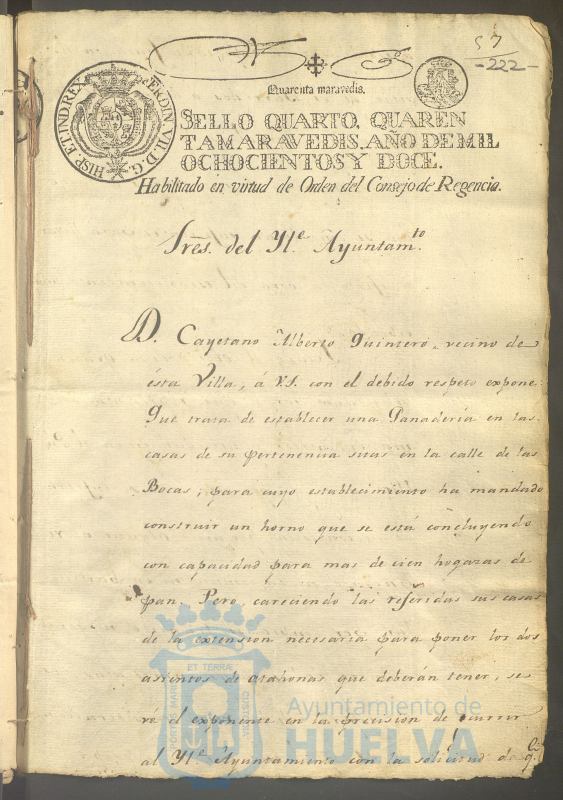 57
-222-
HISP. ET IND. REX FERDIN. VII. D. G.
Quarenta maravedis.
SELLO QUARTO, QUAREN
TA MARAVEDIS, AÑO DE MIL
OCHOCIENTOS Y DOCE.
Habilitado en virtud de Orden del Consejo de Regencia.
Sres. del Yle. Ayuntamto.
D. Cayetano Alberto Quintero, vecino de
ésta Villa, á V.S. con el debido respeto expone:
Que trata de establecer una Panadería en las
casas de su pertenencia sitas en la calle de las
Bocas; para cuyo establecimiento ha mandado
construir un horno que se está concluyendo
con capacidad para mas de cien hogazas de
pan. Pero careciendo las referidas sus casas
de la extension necesaria para poner los dos
asientos de atahonas que deberán tener, se
vé el exponente en la precision de ocurrir
al Yle. Ayuntamiento con la solicitud de
ET TERRÆ
PORTUS MARIS
CUSTODIA
Ayuntamiento de
HUELVA